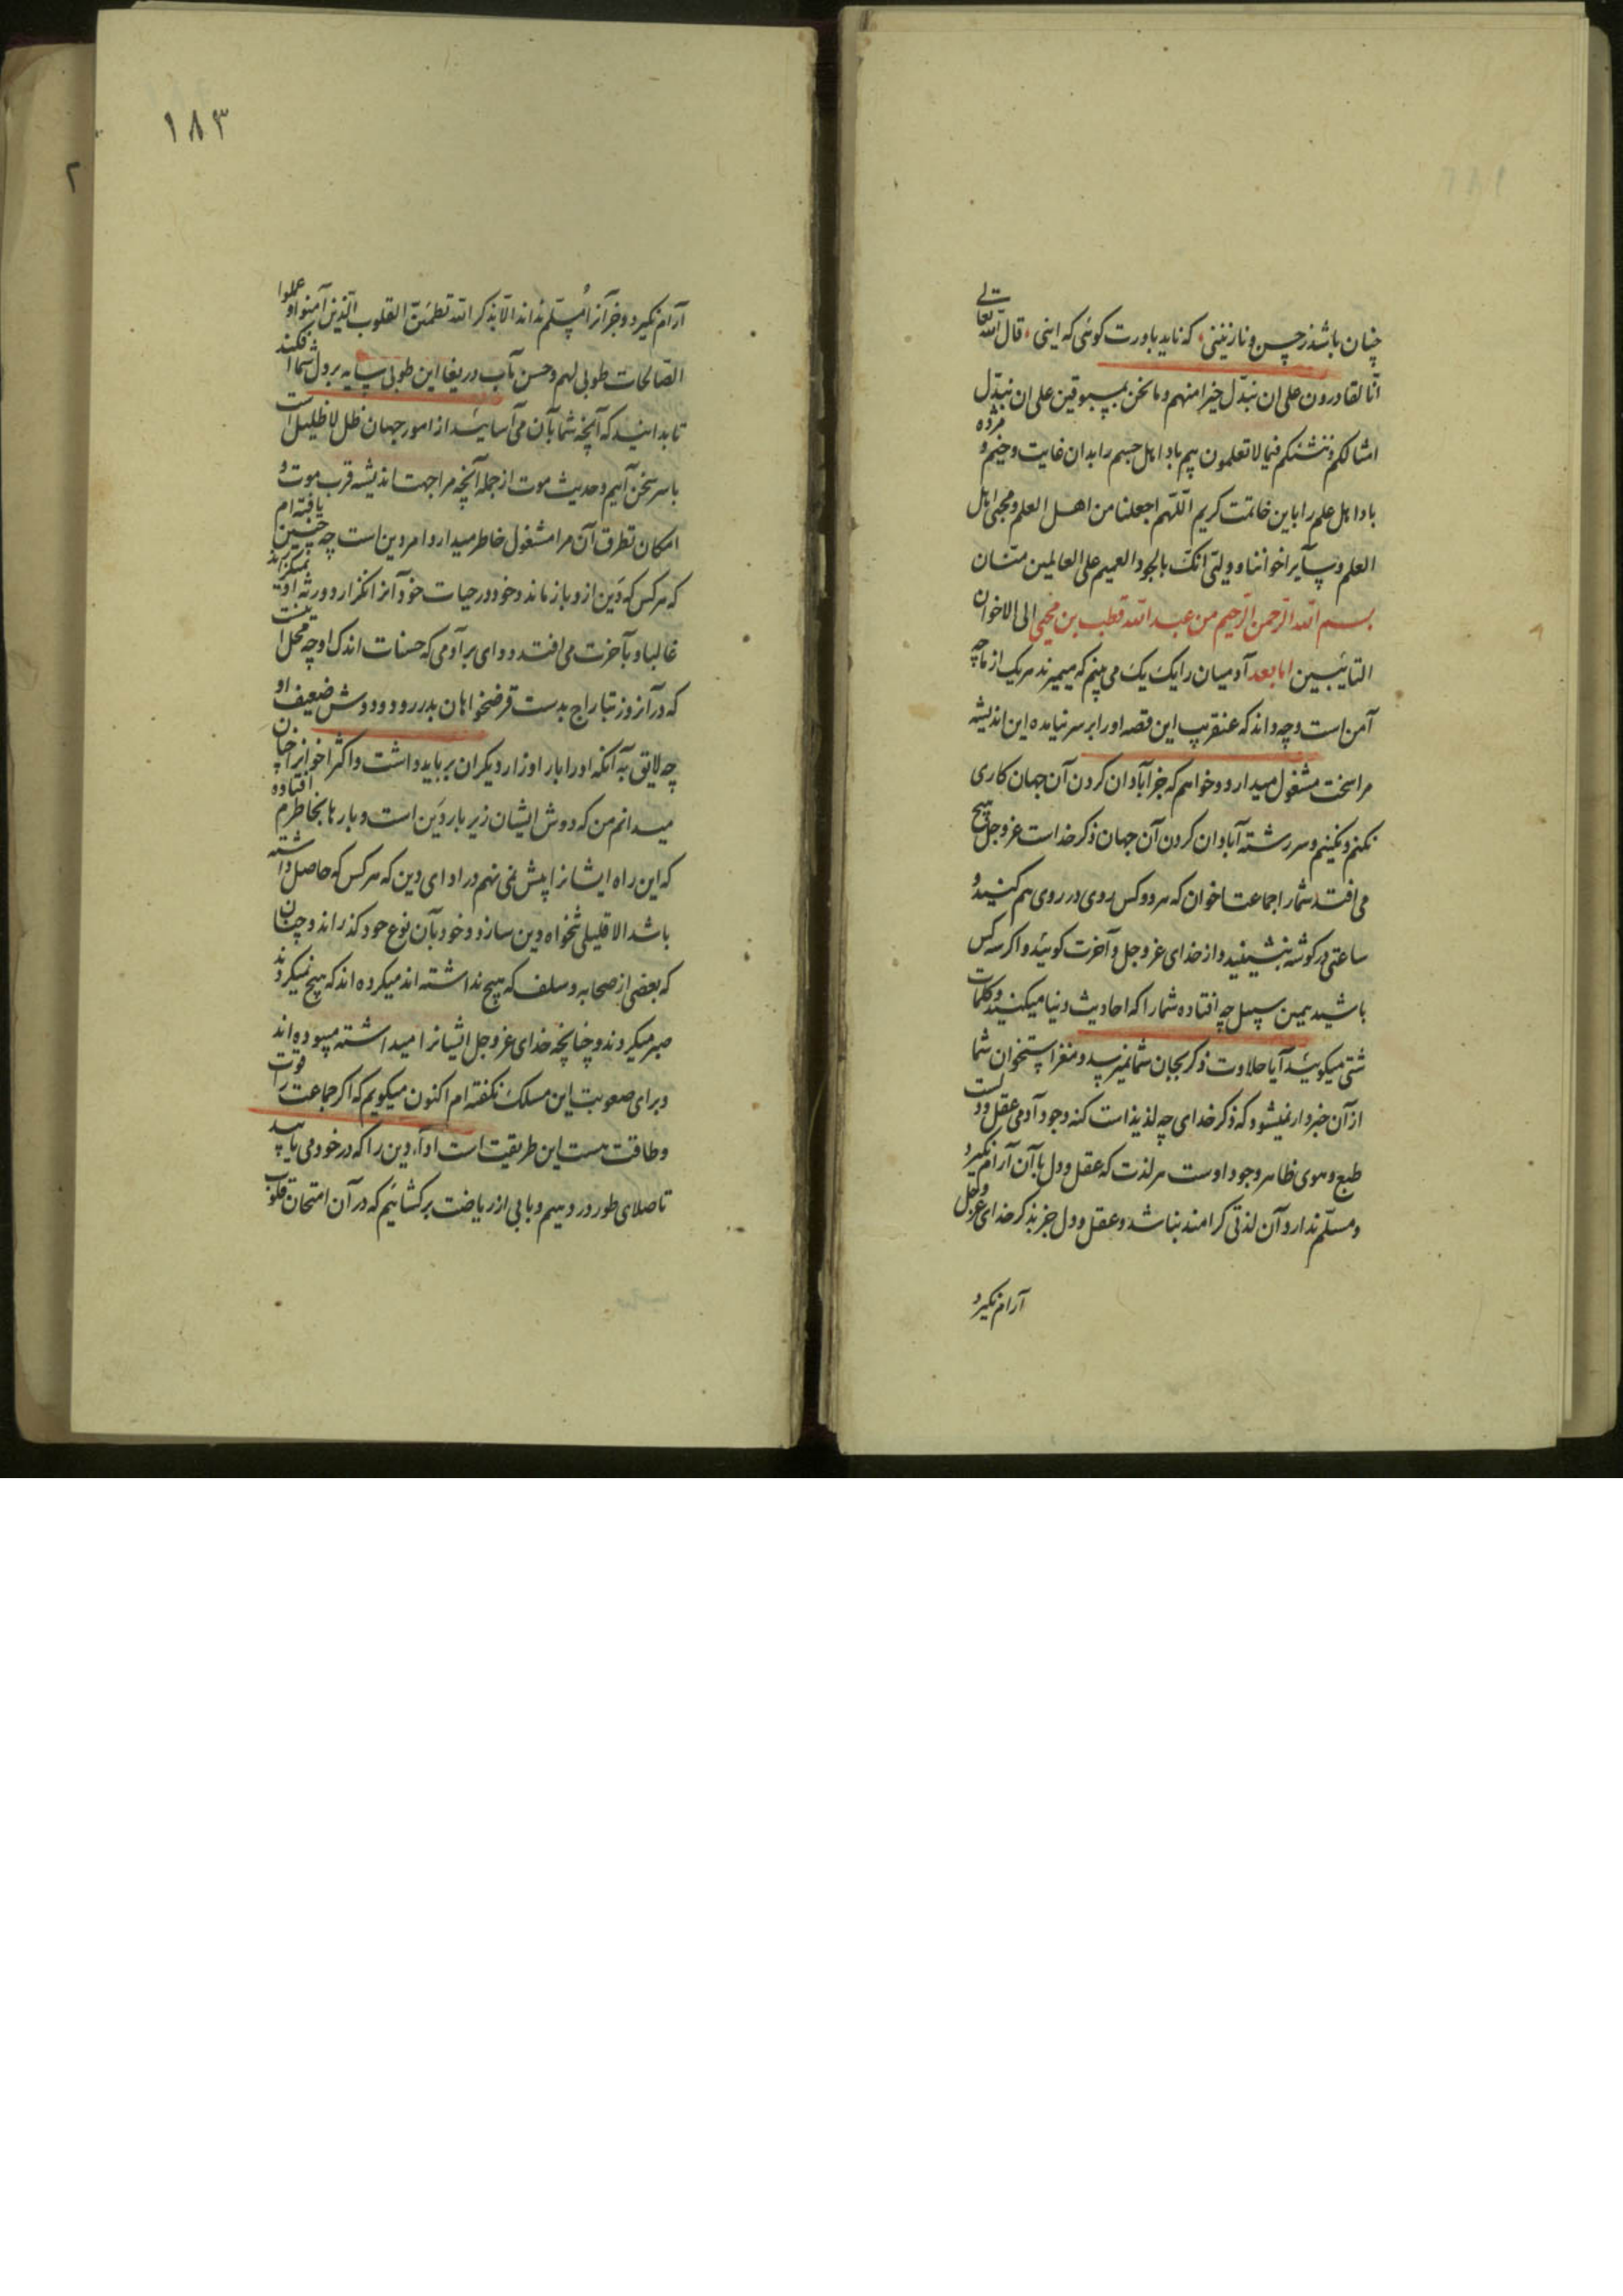 چنان باشد ز حسن و نازنینی که ناید باورت کوئی که اینی قال الله تعالی
انا لقادرون علی ان نبدّل خیرا منهم وما نحن بمسبوقین علی ان نبدّل
امثالکم وننشئکم فیما لا تعلمون بیم باد اهل جسم را بدان غایت وخیم و مژده
باد اهل علم را باین خاتمت کریم اللّهم اجعلنا من اهل العلم ومحبی اهل
العلم وسایر اخواننا وولیّی انک بالجود العمیم علی العالمین منّان
بسم الله الرّحمن الرّحیم من عبد الله قطب بن محیی الی الاخوان
التایبین اما بعد آدمیان را یک یک می بینم که میمیرند هر یک از ما چه
آمن است وچه داند که عنقریب این قصه او را بر سر نیامده این اندیشه
مرا سخت مشغول میدارد وخواهم که جز آبادان کردن آن جهان کاری
نکنم ونکنیم وسر رشته آبادان کردن آن جهان ذکر خداست عز وجل هیچ
می افتد شما را جماعت اخوان که هر دو کس روی در روی هم کنید و
ساعتی در کوشه بنشینید واز خدای عز وجل وآخرت کوئید واکر سه کس
باشید همین سبیل چه افتاده شما را که احادیث دنیا میکنید وکلمات
شتی میکوئید آیا حلاوت ذکر بجان شما نمیرسد ومغز استخوان شما
از آن خبردار نمیشود که ذکر خدای چه لذیذ است کنه وجود آدمی عقل ودلست
طبع وهوی ظاهر وجود اوست هر لذت که عقل ودل با آن آرام نکیرد
ومسلّم ندارد آن لذتی کرامند نباشد وعقل ودل جز بذکر خدای عز وجل
آرام نکیرد
۱۸۳
آرام نکیرد وجز آنرا مسلّم نداند الّا بذکر الله تطمئنّ القلوب الّذین آمنوا وعملوا
الصّالحات طوبی لهم وحسن مآب دریغا این طوبی سایه بر دل شما افکند
تا بدانید که آنچه شما بآن می آسائید از امور جهان ظل لا ظلیل است
با سر سخن آئیم وحدیث موت از جمله آنچه مرا جهت اندیشه قرب موت و
امکان تطرق آن مرا مشغول خاطر میدارد امر دین است چه چنین یافته ام
که هر کس که دَین از و باز ماند وخود در حیات خود آنرا نکزارد ورثه او نمیکزارند
غالبا وبآخرت می افتد ووای بر آدمی که حسنات اندک او چه محل آنست
که در آنروز بتاراج بدست قرضخواهان بدر رود ودوش ضعیف او
چه لایق به آنکه او را بار اوزار دیکران بر باید داشت واکثر اخوانرا چنان
میدانم من که دوش ایشان زیر بار دَین است وبارها بخاطرم افتاده
که این راه ایشانرا پیش نمی نهم در ادای دین که هر کس که حاصل داشته
باشد الا قلیلی تنخواه دین سازد وخود بآن نوع خود کذراند وچنان
که بعضی از صحابه وسلف که هیچ نداشته اند میکرده اند که هیچ نمیکردند
صبر میکردند وچنانچه خدای عز وجل ایشانرا میداشته میبوده اند
وبرای صعوبت این مسلک نکفته ام اکنون میکویم که اکر جماعت را قوت
وطاقت هست این طریقیت است اداء دین را که در خود می یابید
تا صلای طور در دهیم وبابی از ریاضت بر کشائیم که در آن امتحان قلوب